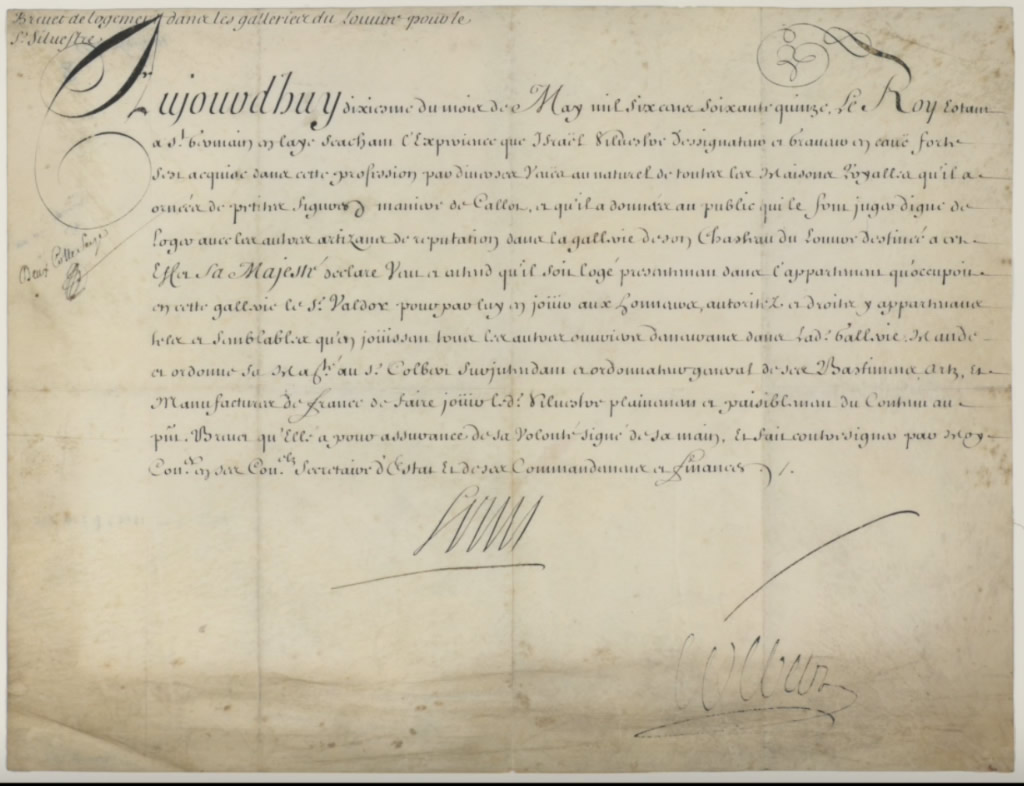 Brevet de logement dans les galleries du Louvre pour le
Sr. Silvestre.
Aujourd'huy dixiesme du mois de May mil six cens soixante quinze, Le Roy Estant
a St. Germain en Laye Scachant l'Experience que Israël Silvestre Dessignateur et Graveur en eauë forte
s'est acquise dans cette profession par diverses Veües au naturel de toutes les Maisons Royalles qu'il a
ornées de petites figures maniere de Callot, et qu'il a données au public qui le font juger digne de
Loger avec les autres artizans de reputation dans la gallerie de son Chasteau du Louvre destinée a cet
Effet Sa Majesté declare Veut et entend qu'il soit logé presentement dans l'appartement qu'occupoit
en cette gallerie le Sr. Valdor pour par luy en joüir aux honneurs, autoritez et droits y appartenans
tels et semblables qu'en joüissent tous les autres ouvriers demeurans dans lad. Gallerie. Mande
et ordonne Sa Maté. au Sr. Colbert Surjntendant et ordonnateur general de ses Bastimens, Artz, Et
Manufactures De france de faire joüir led. Silvestre plainement et paisiblement du Contenu au
pnt. Brevet qu'Elle a pour assurance de sa Volonté signé de sa main, Et fait contresigner par Moy
Conser. en ses Conels. Secretaire d'Estat Et de ses Commandemens et finances ./.
Louis
Colbert